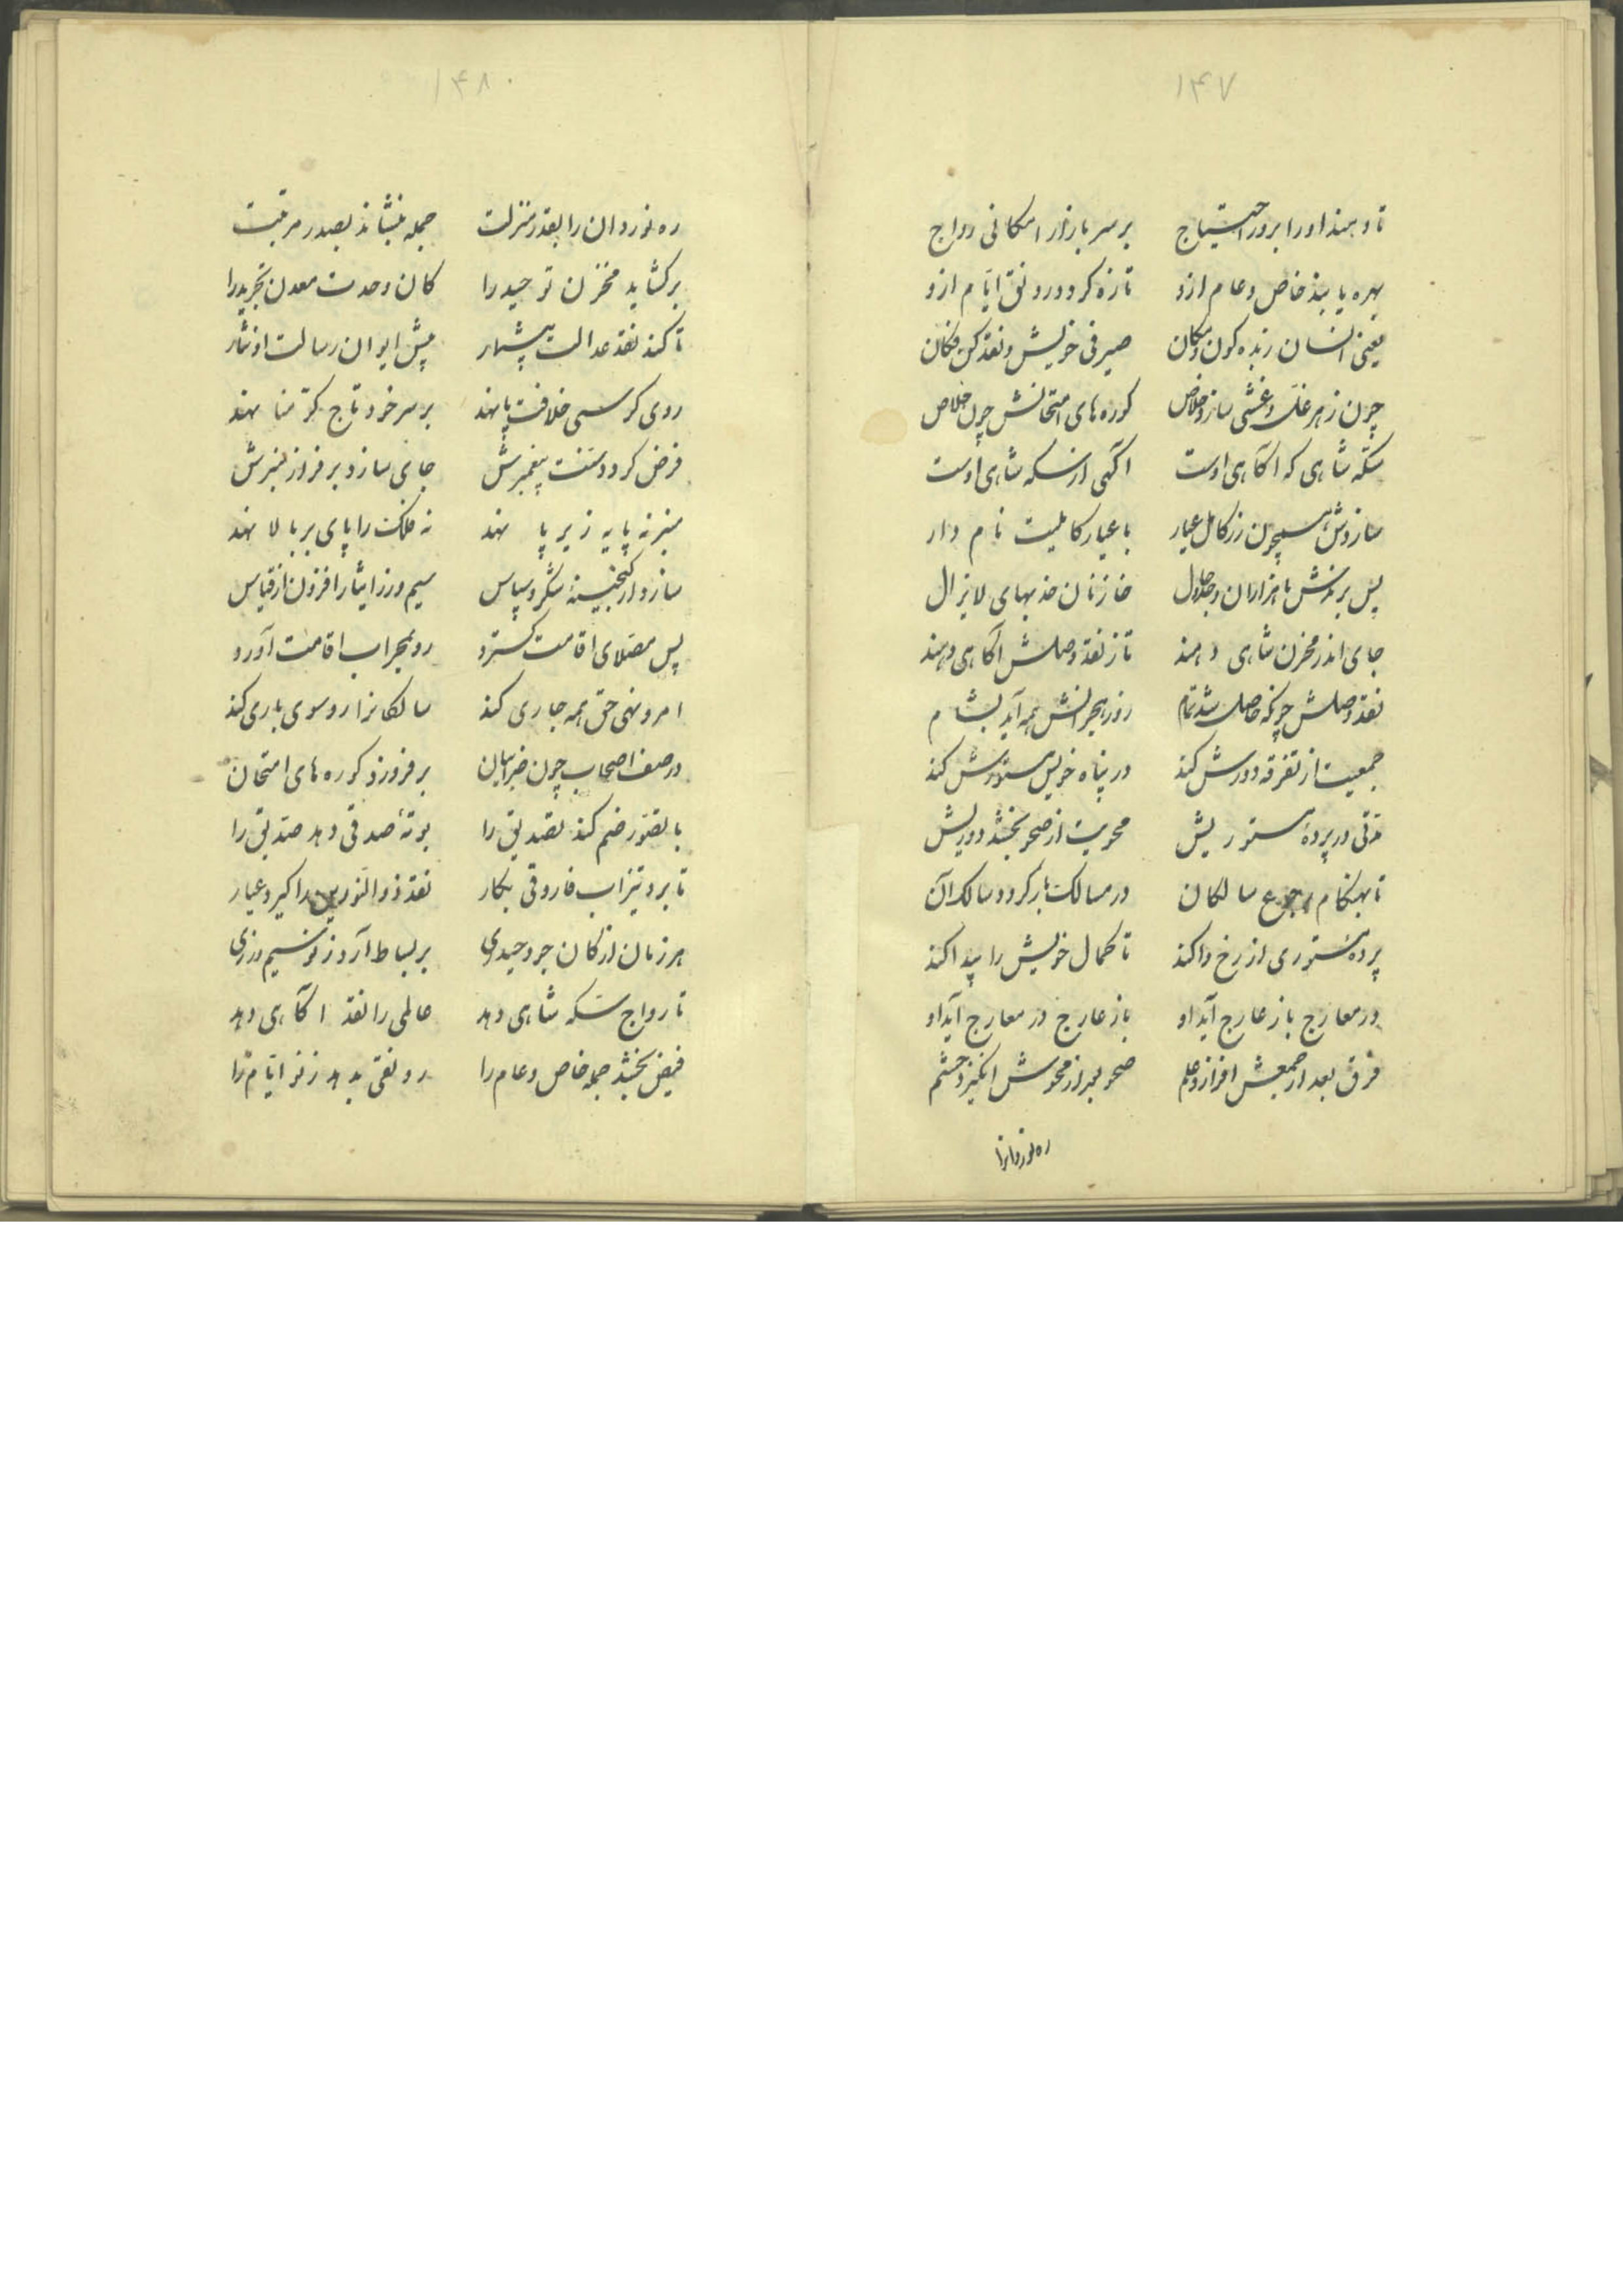 ۱۴۷
تا دهند او را بروز احتیاج بر سر بازار امکانی رواج
بهره یابند خاص و عام ازو تازه گردد رونق ایام ازو
یعنی انسان زبده کون و مکان صیرفی خویش و نقد کن فکان
چون ز هر غل و غشی سازد خلاص کوره های امتحانش چون خلاص
سکه شاهی که آگاهی اوست آگهی از سکه شاهی اوست
سازدش همچون زر کامل عیار با عیار کاملیت نام دار
پس برندش با هزاران و جلال خازنان جذبهای لایزال
جای اندر مخزن شاهی دهند تا ز نقد وصلش آگاهی دهند
نقد وصلش چونکه حاصل شد تمام روز هجرانش همه آید بشام
جمعیت از تفرقه دورش کند در پناه خویش مستورش کند
مدتی در پرده مستوریش محویت از صحو بخشد دوریش
تا بهنگام رجوع سالکان در مسالک باز گردد سالک آن
پرده مستوری از رخ وا کند تا کمال خویش را پیدا کند
در معارج باز عارج آید او باز عارج در معارج آید او
فرق بعد از جمعش افرازد علم صحو بعد از محوش انگیزد حشم
ره نوردانرا
۱۴۸
ره نوردان را بقدر منزلت جمله بنشاند بصدر مرتبت
بر گشاید مخزن توحید را کان وحدت معدن تجرید را
تا کند نقد عدالت بیشمار پیش ایوان رسالت او نثار
روی کرسی خلافت پا نهد بر سر خود تاج کرمنا نهد
فرض گردد سنت پیغمبرش جای سازد بر فراز منبرش
منبر نه پایه زیر پا نهد نه فلک را پای بر بالا نهد
سازد از گنجینه شکر و سپاس سیم و زر ایثار افزون از قیاس
پس مصلای اقامت گسترد رو بمحراب اقامت آورد
امر و نهی حق همه جاری کند سالکانرا رو سوی باری کند
در صف اصحاب چون بر فروزد کوره های امتحان
با تصور ضم کند تصدیق را بوته صدقی دهد صدیق را
تا برد تیزاب فاروقی بکار نقد ذوالنورین را گیرد عیار
هر زمان از کان جود حیدری بر بساط آرد ز نو سیم و زری
تا رواج سکه شاهی دهد عالمی را نقد آگاهی دهد
فیض بخشد جمله خاص و عام را رونقی بدهد ز نو ایام را